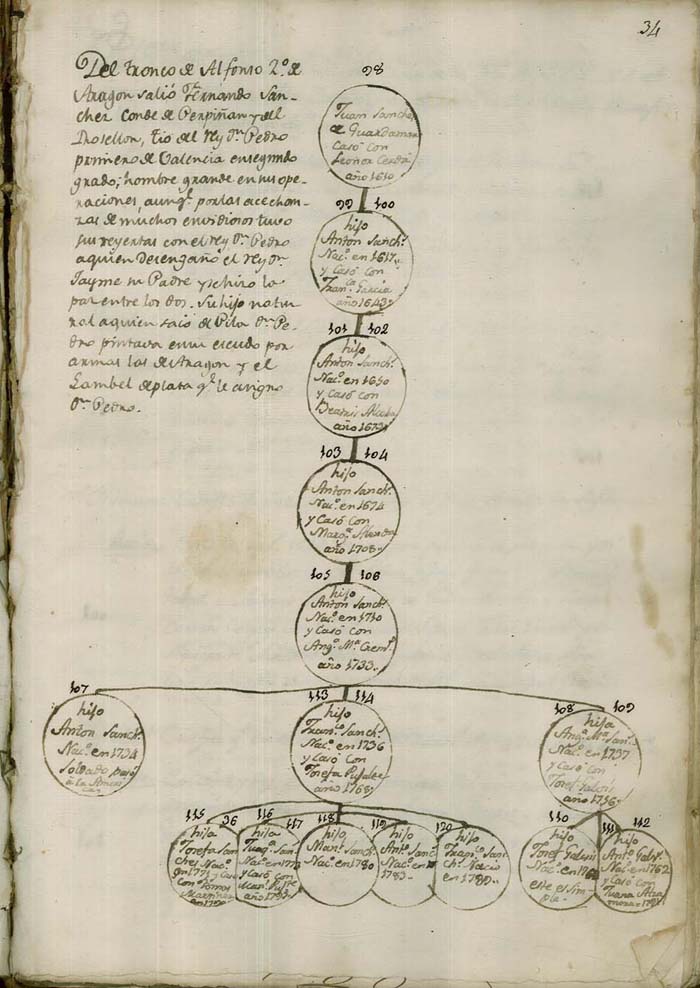 34
Del tronco de Alfonso 2.º de
Aragon salió Fernando San-
chez Conde de Perpiñan y del
Rosellon, tio del rey Dn. Pedro
primero de Valencia en segundo
grado; hombre grande en sus ope-
raciones, aunq.e por las acechan-
zas de muchos envidiosos tuvo
sus reyertas con el rey Dn. Pedro
a quien desengañó el rey Dn.
Jayme su Padre y se hizo la
paz entre los dos. Su hijo natu-
ral a quien sacó de Pila Dn. Pe-
dro pintava en su escudo por
armas las de Aragon y el
Lambel de plata q.e le asigno
Dn. Pedro.
98
Juan Sanchez
de Guardamar
Casó con
Leonor Cerdá
año 1610
99 100
hijo
Anton Sanch.z
Nac.º en 1617
y Casó con
Fran.ca Garcia
año 1643
101 102
hijo
Anton Sanch.z
Nac.º en 1650
y Casó con
Beatris
año 1673
103 104
hijo
Anton Sanch.z
Nac.º en 1674
y Casó con
Marg.ª
año 1708
105 106
hijo
Anton Sanch.z
Nac.º en 1710
y Casó con
Ang.ª M.ª
año 1733
107
hijo
Anton Sanch.z
Nac.º en 1734
Soldado pasó
a la
113 114
hijo
Fran.co Sanch.z
Nac.º en 1736
y Casó con
Josefa
año 1768
108 109
hija
Ang.ª M.ª San.z
Nac.º en 1737
y Casó con
Josef
año 1756
115 36
hija
Josefa San
chez Nac.º
en 1771 y Casó
con Tomas
Martinez
en
116 117
hija
San.z
Nac.º en
y Casó con
año
118
hijo
Man.l Sanch.z
Nac.º en 1780
119
hijo
Ant.º Sanc.z
Nac.º en
1783
120
hijo
Fran.co San
ch.z Nacio
en 1789
110
hijo
Josef
Nac.º en
este es Sim
ple
111 112
hijo
Ant.º
Nac.º en 1762
y Casó con
Juana